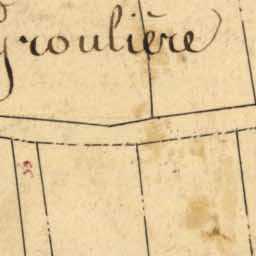 Groulière